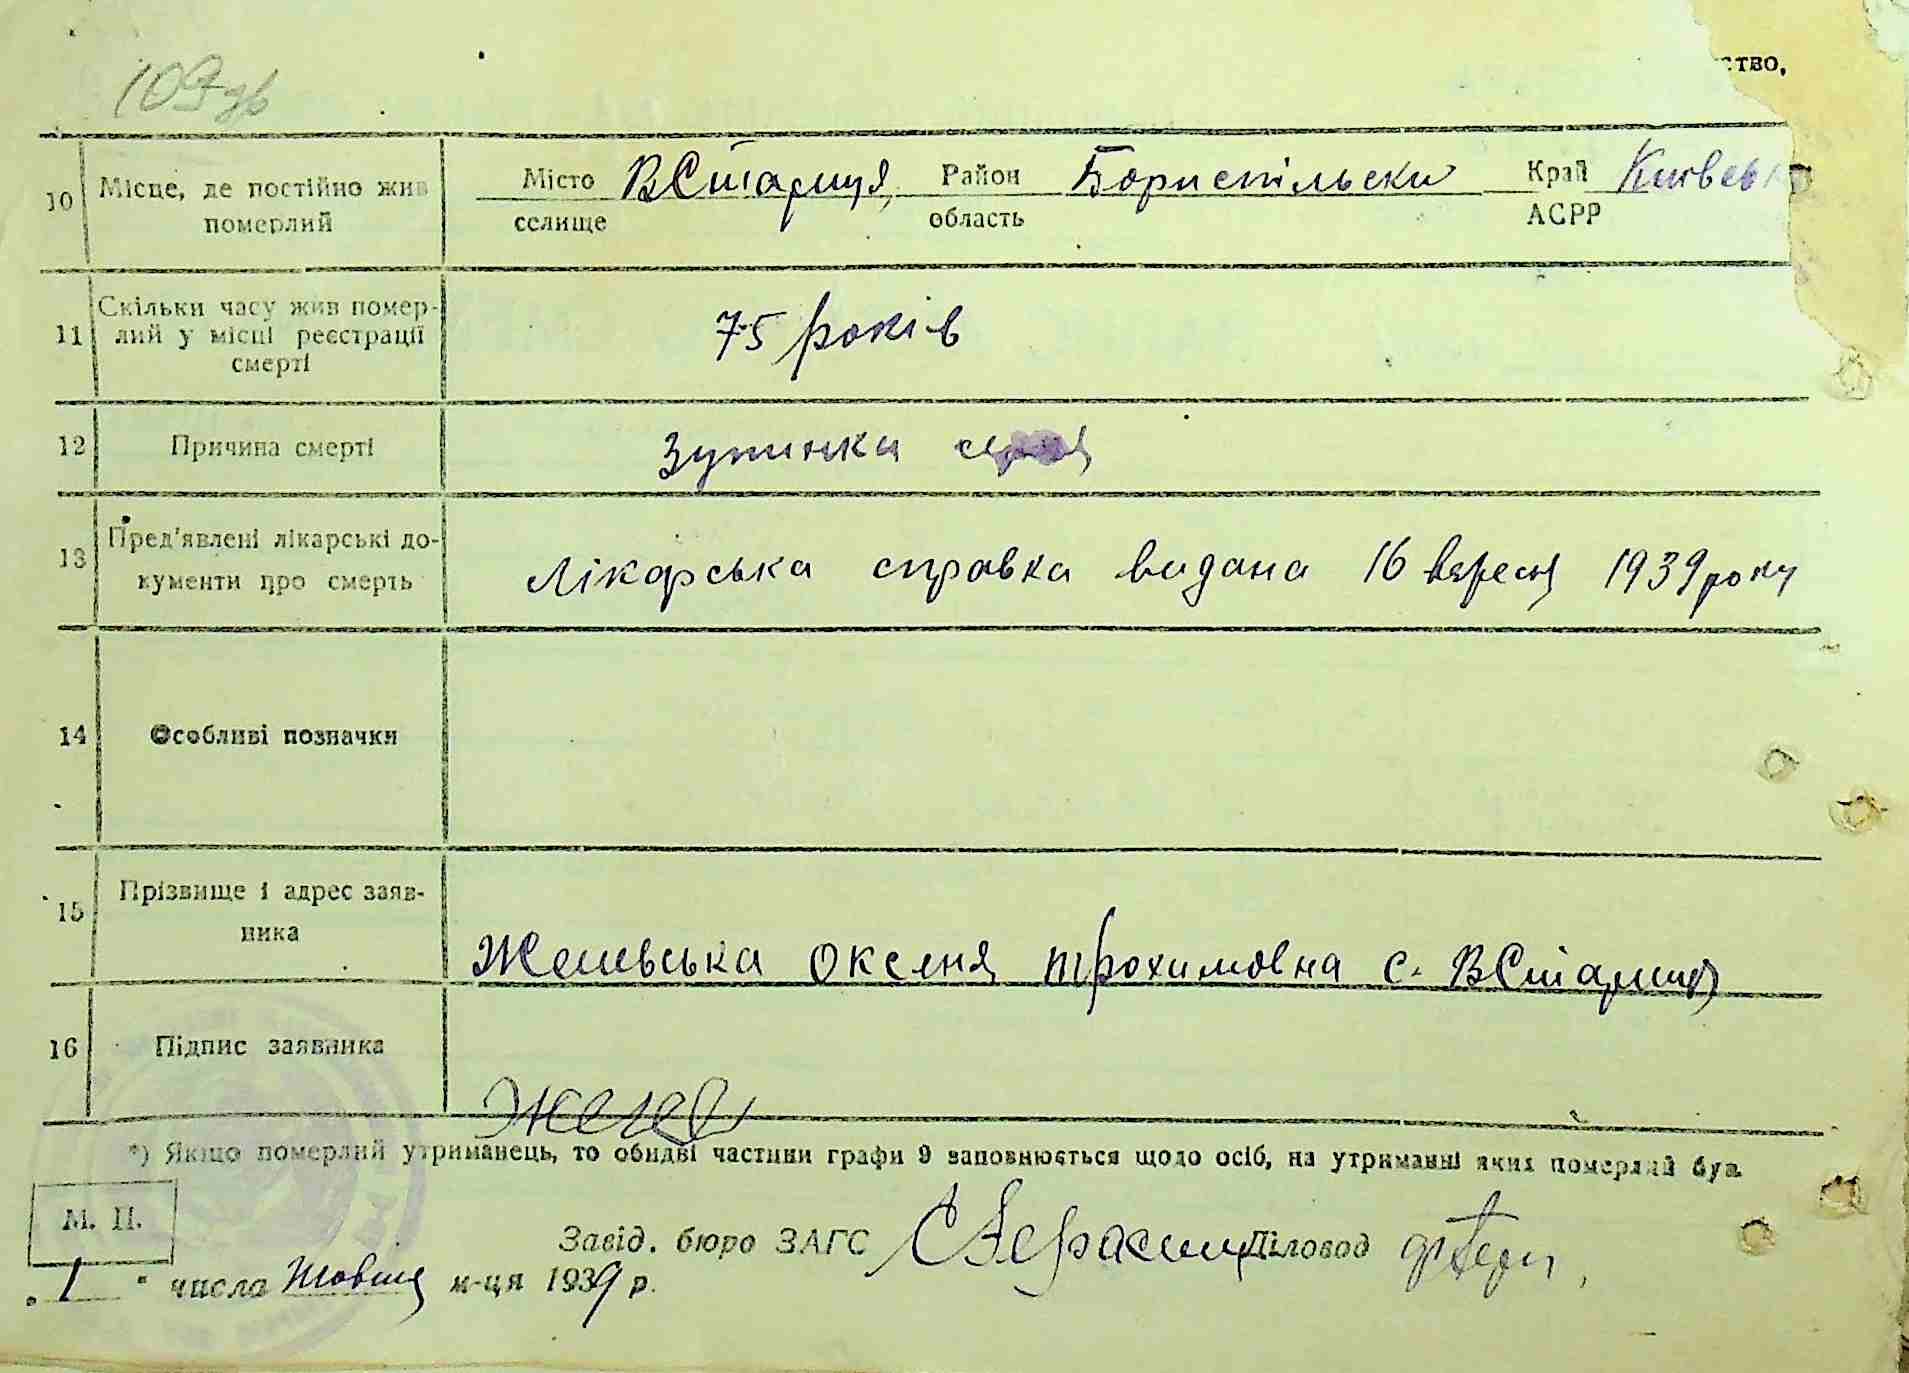 109 зв
ство,
10 Місце, де постійно жив померлий Місто селище ВСтариця, Район область Бориспільски Край АСРР Київськ
11 Скільки часу жив померлий у місці реєстрації смерті 75 років
12 Причина смерті Зупинка серця
13 Пред'явлені лікарські документи про смерть Лікарська справка видана 16 вересня 1939 року
14 Особливі позначки
15 Прізвище і адрес заявника оксеня трохимовна с. ВСтариця
16 Підпис заявника
*) Якщо померлий утриманець, то обидві частини графи 9 заповнюється щодо осіб, на утриманні яких померлий був.
М. П.
Завід. бюро ЗАГС Діловод
„1" числа жовтня м-ця 1939 р.